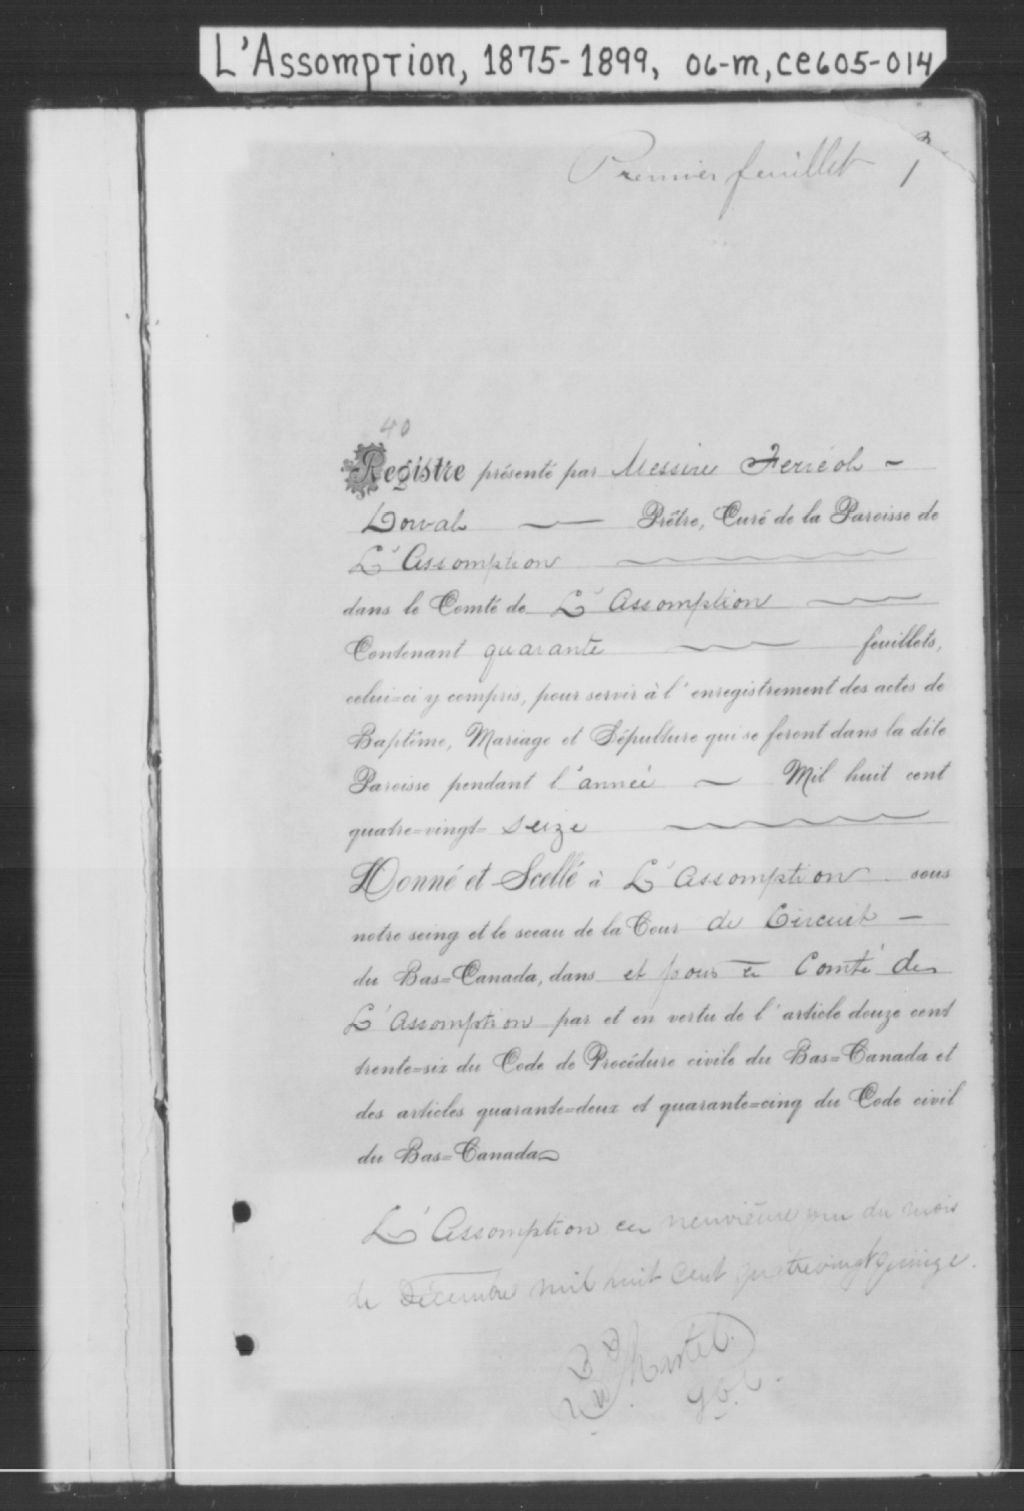 L'Assomption, 1875-1899, 06-m, ce605-014
Premier feuillet 1
40
Registre présenté par Messire Ferréol
Dorval Prêtre, Curé de la Paroisse de
L'Assomption
dans le Comté de L'Assomption
Contenant quarante feuillets,
celui-ci y compris, pour servir à l'enregistrement des actes de
Baptême, Mariage et Sépulture qui se feront dans la dite
Paroisse pendant l'année Mil huit cent
quatre=vingt= seize
Donné et Scellé à L'Assomption sous
notre seing et le sceau de la Cour de Circuit
du Bas=Canada, dans et pour le Comté de
L'Assomption par et en vertu de l'article douze cent
trente=six du Code de Procédure civile du Bas=Canada et
des articles quarante=deux et quarante=cinq du Code civil
du Bas=Canada
L'Assomption ce neuvième jour du mois
de Décembre mil huit cent quatrevingt quinze.
Martel